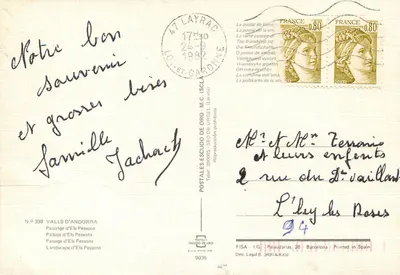 Notre bon
souvenir
et grosses bises
famille
47 LAYRAC
LOT-ET-GARONNE
FRANCE 0,80
FRANCE 0,80
POSTALES ESCUDO DE ORO
Reproducción prohibida
Mr et Mme
et leurs enfants
2 rue du Dr Vaillant
L'hay les Roses
94
VALLS D'ANDORRA
Paisatge d'Els Pessons
Paisaje d'Els Pessons
Paysage d'Els Pessons
Landscape d'Els Pessons
FISA I.G. Palaudarias, 26 - Barcelona - Printed in Spain